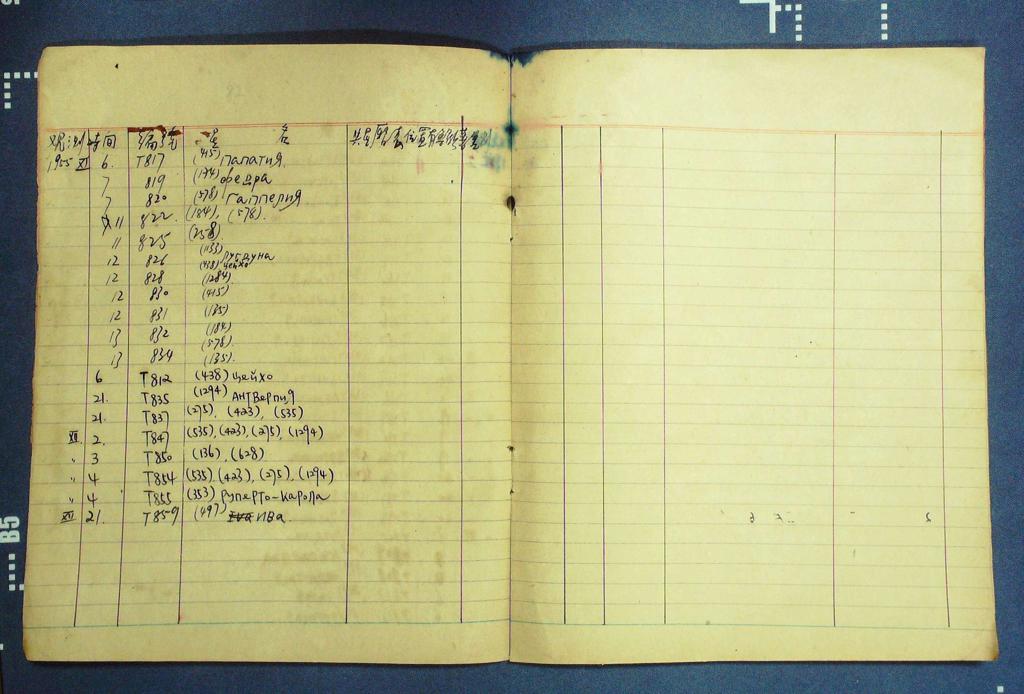 观测时间 编号 星名
1955 XI 6. T817 (415) Палатия
7 819 (174) Федра
7 820 (578) Гаппелия
11 822 (184), (578).
11 825 (258)
12 826 (1133)
12 828 (1284)
12 830 (415)
12 831 (135)
13 832 (184)
13 834 (578) (135).
6 T812 (438) Цейхо
21. T835 (1294) АНТВерпиЯ
21. T837 (275), (423), (535)
XII 2. T847 (535), (423), (275), (1294)
" 3 T850 (136), (628)
" 4 T854 (535), (423), (275), (1294)
" 4 T855 (353) Руперто-Карола
XII 21. T859 (497) Ива.
B5